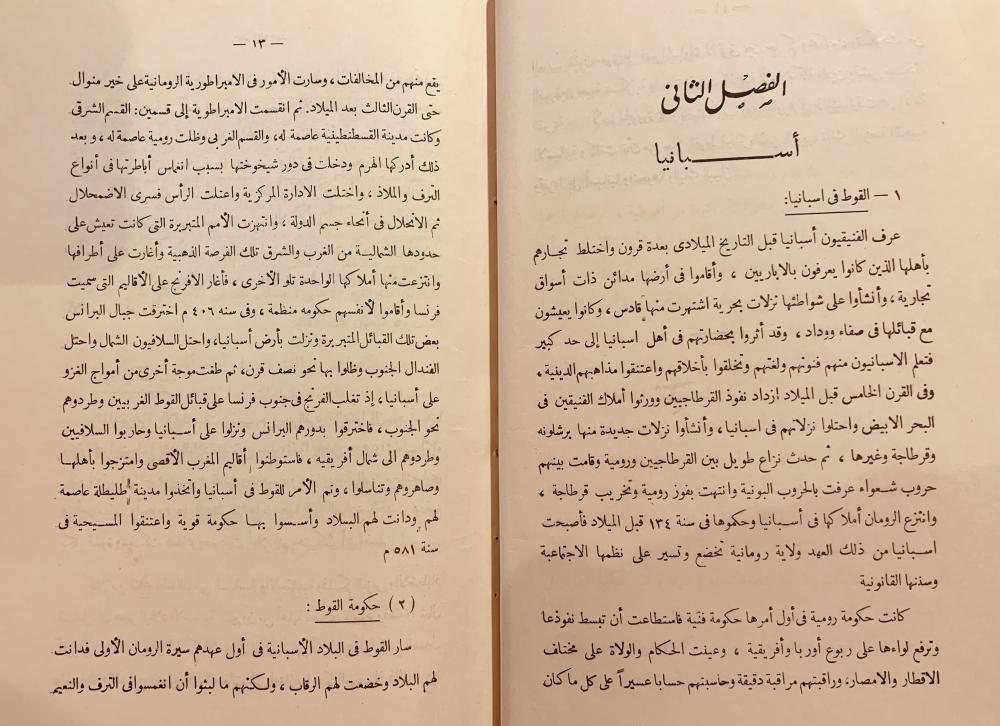 الفصل الثانى
أسبانيا
١ — القوط فى اسبانيا:
عرف الفنيقيون أسبانيا قبل التاريخ الميلادى بعدة قرون واختلط تجارهم
بأهلها الذين كانوا يعرفون بالاباريين ، وأقاموا فى أرضها مدائن ذات أسواق
تجارية ، وأنشأوا على شواطئها نزلات بحرية اشتهرت منها قادس ، وكانوا يعيشون
مع قبائلها فى صفاء ووداد ، وقد أثروا بحضارتهم فى أهل اسبانيا إلى حد كبير
فتعلم الاسبانيون منهم فنونهم ولغتهم وتخلقوا بأخلاقهم واعتنقوا مذاهبهم الدينية ،
وفى القرن الخامس قبل الميلاد ازداد نفوذ القرطاجيين وورثوا أملاك الفنيقين فى
البحر الابيض واحتلوا نزلاتهم فى اسبانيا ، وأنشأوا نزلات جديدة منها برشلونه
وقرطاجة وغيرها ، ثم حدث نزاع طويل بين القرطاجيين ورومية وقامت بينهم
حروب شعواء عرفت بالحروب البونية وانتهت بفوز رومية وتخريب قرطاجة ،
وانتزع الرومان أملاكها فى أسبانيا وحكموها فى سنة ١٣٤ قبل الميلاد فأصبحت
اسبانيا من ذلك العهد ولاية رومانية تخضع وتسير على نظمها الاجتماعية
وسننها القانونية
كانت حكومة رومية فى أول أمرها حكومة فتية فاستطاعت أن تبسط نفوذها
وترفع لواءها على ربوع أوربا وأفريقية ، وعينت الحكام والولاة على مختلف
الاقطار والامصار، وراقبتهم مراقبة دقيقة وحاسبتهم حسابا عسيراً على كل ما كان
— ١٣ —
يقع منهم من المخالفات ، وسارت الأمور فى الامبراطورية الرومانية على خير منوال
حتى القرن الثالث بعد الميلاد. ثم انقسمت الامبراطوية إلى قسمين: القسم الشرقى
وكانت مدينة القسطنطينية عاصمة له، والقسم الغربى وظلت رومية عاصمة له ، وبعد
ذلك أدركها الهرم ودخلت فى دور شيخوختها بسبب انغماس أباطرتها فى أنواع
الترف والملاذ ، واختلت الادارة المركزية واعتلت الرأس فسرى الاضمحلال
ثم الانحلال فى أنحاء جسم الدولة ، وانتهزت الأمم المتبربرة التى كانت تعيش على
حدودها الشمالية من الغرب والشرق تلك الفرصة الذهبية وأغارت على أطرافها
وانتزعت منها أملاكها الواحدة تلو الأخرى ، فأغار الافرنج على الأقاليم التى سميت
فرنسا وأقاموا لأنفسهم حكومه منظمة ، وفى سنه ٤٠٦ م اخترقت جبال البرانس
بعض تلك القبائل المتبربرة ونزلت بأرض أسبانيا، واحتل السلافيون الشمال واحتل
الفندال الجنوب وظلوا بها نحو نصف قرن، ثم طغت موجة أخرى من أمواج الغزو
على أسبانيا ، إذ تغلب الفرنج فى جنوب فرنسا على قبائل القوط الغربيين وطردوهم
نحو الجنوب ، فاخترقوا بدورهم البرانس ونزلوا على أسبانيا وحاربوا السلافيين
وطردوهم الى شمال أفريقيه ، فاستوطنوا أقاليم المغرب الأقصى وامتزجوا بأهلها
وصاهروهم وتناسلوا ، وتم الأمر للقوط فى أسبانيا واتخذوا مدينة طليطلة عاصمة
لهم ودانت لهم البلاد وأسسوا بها حكومة قوية واعتنقوا المسيحية فى
سنة ٥٨١ م
(٢) حكومة القوط :
سار القوط فى البلاد الأسبانية فى أول عهدهم سيرة الرومان الأولى فدانت
لهم البلاد وخضعت لهم الرقاب ، ولكنهم ما لبثوا أن انغمسوا فى الترف والنعيم